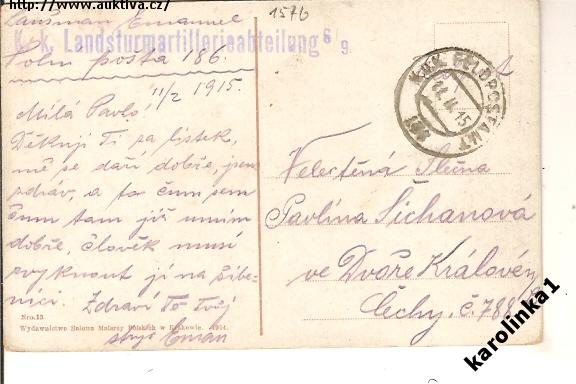 http://www.auktiva.cz/
1576
Laušman Emanuel
K.k. Landsturmartillerieabteilung 6/9
Polní pošta 186.
K.u.K. FELDPOSTAMT
11. II. 15
186
11/2 1915.
Milá Pavlo!
Děkuji Ti za lístek,
mě se daří dobře, jsem
zdráv, a to čum sem
čum tam již umím
dobře, člověk musí
zvyknout jí na šibe-
nici. Zdraví Tě Tvůj
strýc Eman
Velectěná Slečna
Pavlína Šichanová
ve Dvoře Králové
Čechy. č. 788
Nro. 13
Wydawnictwo Salonu Malarzy Polskich w Krakowie. 1914.
karolinka1